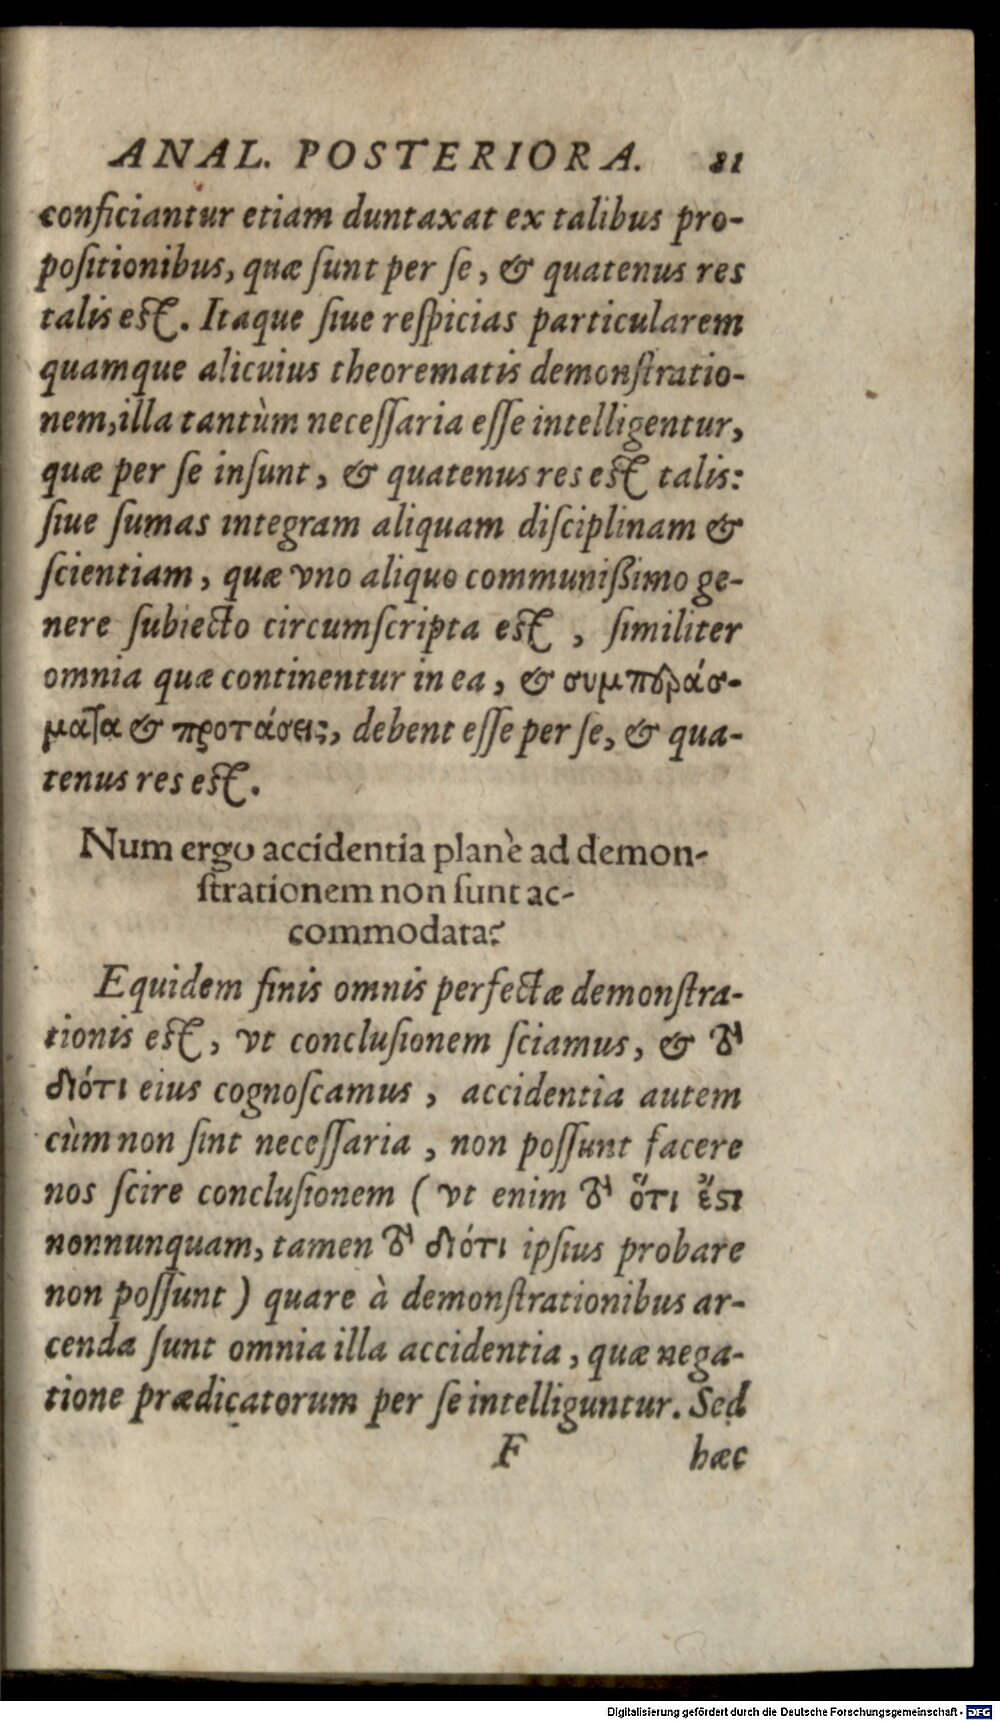 ANAL. POSTERIORA. 81
conficiantur etiam duntaxat ex talibus pro-
poſitionibus, quæ ſunt per ſe, & quatenus res
talis eſt. Itaque ſiue reſpicias particularem
quamque alicuius theorematis demonſtratio-
nem, illa tantùm neceſſaria eſſe intelligentur,
quæ per ſe inſunt, & quatenus res eſt talis:
ſiue ſumas integram aliquam diſciplinam &
ſcientiam, quæ vno aliquo communißimo ge-
nere ſubiecto circumſcripta eſt, ſimiliter
omnia quæ continentur in ea, & συμπεράσ-
ματα & προτάσεις, debent eſſe per ſe, & qua-
tenus res eſt.
Num ergo accidentia planè ad demon-
ſtrationem non ſunt ac-
commodata?
Equidem finis omnis perfectæ demonſtra-
tionis eſt, vt concluſionem ſciamus, & τὸ
διότι eius cognoſcamus, accidentia autem
cùm non ſint neceſſaria, non poſſunt facere
nos ſcire concluſionem (vt enim τὸ ὅτι ἔστι
nonnunquam, tamen τὸ διότι ipſius probare
non poſſunt) quare à demonſtrationibus ar-
cenda ſunt omnia illa accidentia, quæ nega-
tione prædicatorum per ſe intelliguntur. Sed
F hæc
Digitalisierung gefördert durch die Deutsche Forschungsgemeinschaft - DFG